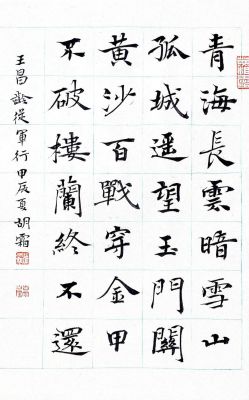 青海長雲暗雪山
孤城遥望玉門關
黃沙百戰穿金甲
不破樓蘭終不還
王昌齡從軍行甲辰夏胡霜